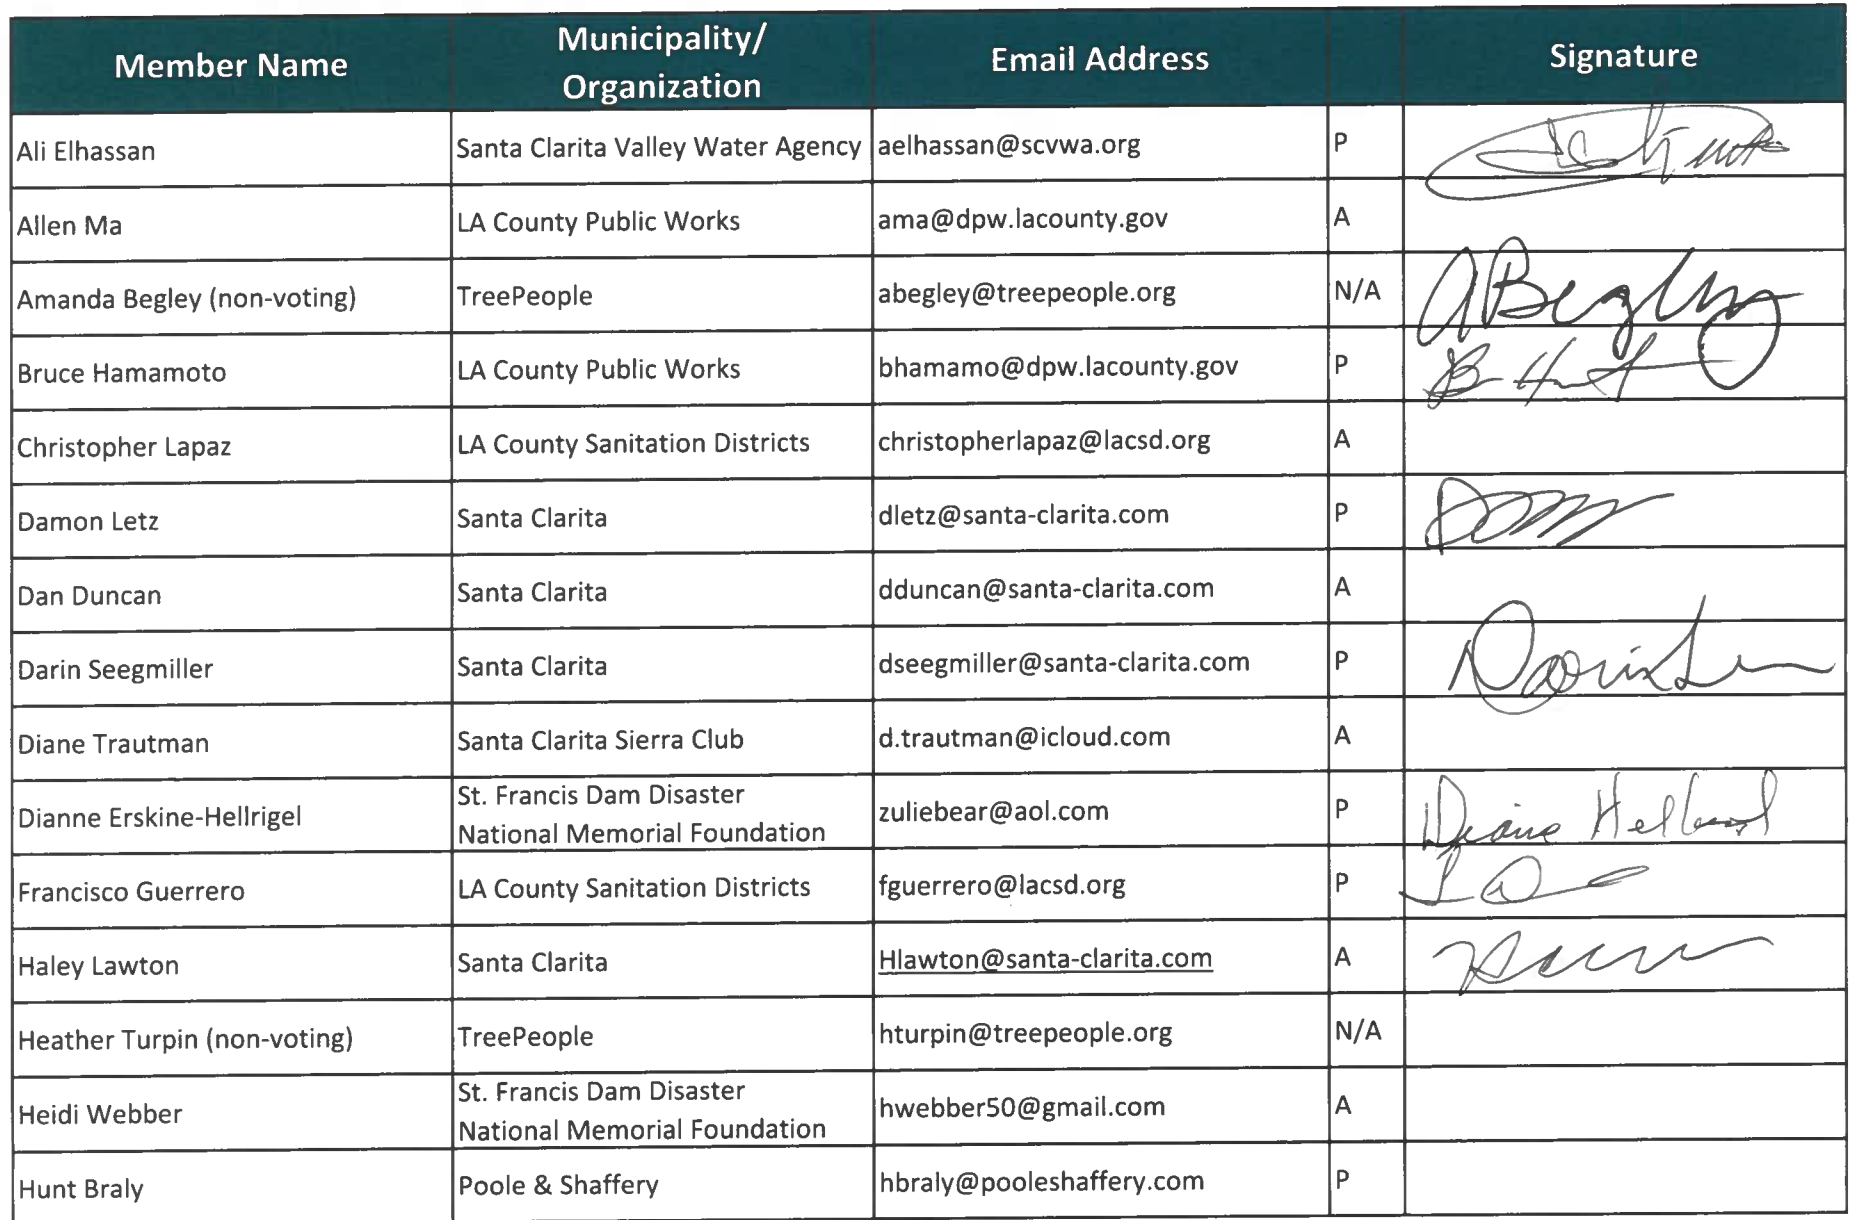 Member Name
Municipality/
Organization
Email Address
Signature
Ali Elhassan
Santa Clarita Valley Water Agency
aelhassan@scvwa.org
P
Allen Ma
LA County Public Works
ama@dpw.lacounty.gov
A
Amanda Begley (non-voting)
TreePeople
abegley@treepeople.org
N/A
ABegley
Bruce Hamamoto
LA County Public Works
bhamamo@dpw.lacounty.gov
P
Christopher Lapaz
LA County Sanitation Districts
christopherlapaz@lacsd.org
A
Damon Letz
Santa Clarita
dletz@santa-clarita.com
P
Dan Duncan
Santa Clarita
dduncan@santa-clarita.com
A
Darin Seegmiller
Santa Clarita
dseegmiller@santa-clarita.com
P
Diane Trautman
Santa Clarita Sierra Club
d.trautman@icloud.com
A
Dianne Erskine-Hellrigel
St. Francis Dam Disaster
National Memorial Foundation
zuliebear@aol.com
P
Francisco Guerrero
LA County Sanitation Districts
fguerrero@lacsd.org
P
Haley Lawton
Santa Clarita
Hlawton@santa-clarita.com
A
Heather Turpin (non-voting)
TreePeople
hturpin@treepeople.org
N/A
Heidi Webber
St. Francis Dam Disaster
National Memorial Foundation
hwebber50@gmail.com
A
Hunt Braly
Poole & Shaffery
hbraly@pooleshaffery.com
P